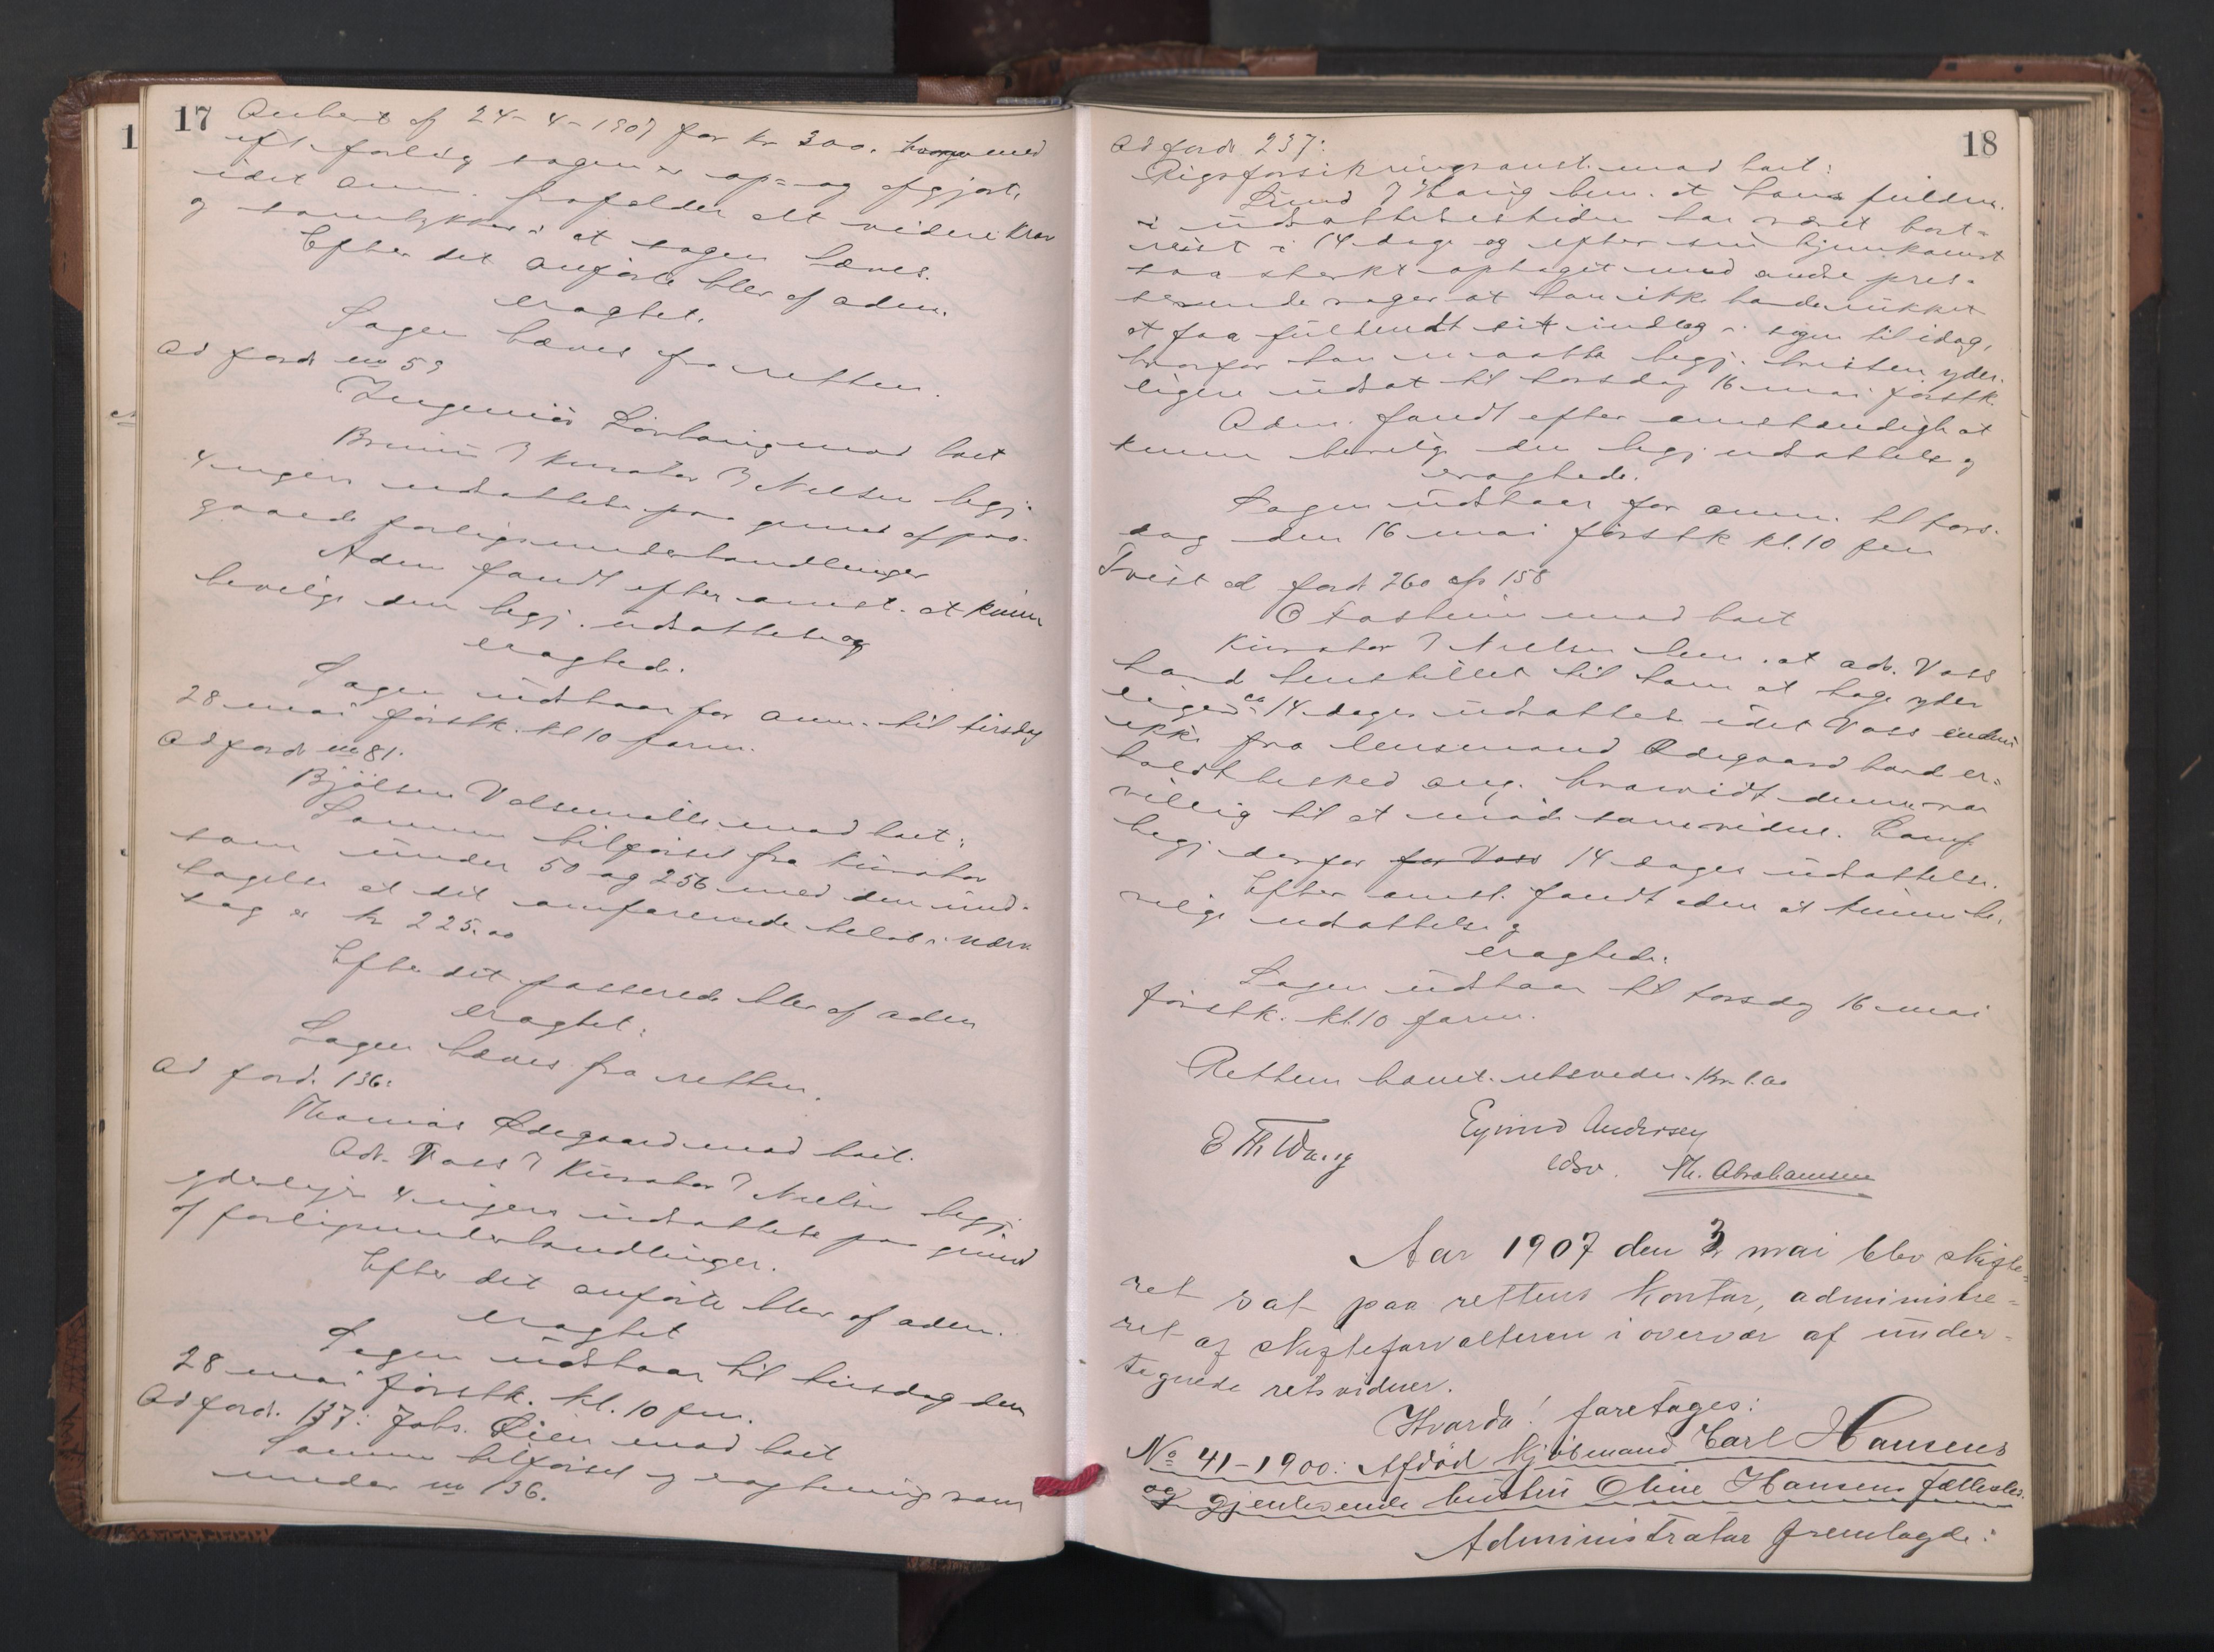 17
af 24-4-1907 for kr 300. med
sagen er op= og afgjort,
idet frafalder alt videre krav
og samtykker i at sagen hæves.
Efter det anførte blev af adm.
eragtet.
Sagen hæves fra retten.
Ad ford. no 59
Ingeniør mod boet
kurator Nielsen begj.
4 ugers udsættelse paa grund af paa-
gaaende forligsunderhandlinger
Adm fandt efter omst. at kunne
bevilge den begj. udsættelse og
eragtede.
Sagen udstaar for anm. til tirsdag
28 mai førstk. kl 10 form.
Ad ford. no 81.
Bjølsen Valsemølle mod boet:
Samme tilførsel fra kurator
som under 50 og 256 med den und-
tagelse at det omførende beløb i nærv.
sag er kr 225.00
Efter det passerede blev af adm
eragtet:
Sagen hæves fra retten.
Ad ford. 136:
Thomas Ødegaard mod boet.
Adv. Voss Kurator Nielsen begj.
yderligere 4 ugers udsættelse paa grund
af forligsunderhandlinger.
Efter det anførte blev af adm.
eragtet
Sagen udstaar til tirsdag den
28 mai førstk. kl. 10 fm.
Ad ford. 137: Johs. Lien mod boet
Samme tilførsel og eragtning som
under no 136.
18
Ad ford 237:
Rigsforsikringsanst. mod boet:
Lund Haug bem. at hans fuldm.
i udsættelsestiden har været bort-
reist i 14 dage og efter sin hjemkomst
saa sterkt optaget med andre pres-
serende sager at han ikke havde rukket
at faa fuldendt sit indlæg i sagen til idag,
hvorfor han maatte begj. tvisten yder-
ligere udsat til torsdag 16 mai førstk.
Adm. fandt efter omstændigh at
kunne bevilge den begj udsættelse og
eragtede.
Sagen udstaar for anm. til tors-
dag den 16 mai førstk kl. 10 fm
Tvist ad ford. 260 cfr 158
O Fosheim mod boet
Kurator Nielsen bem. at adv. Voss
havde henstillet til ham at tage yder
ligere ca 14 dages udsættelse idet Voss endnu
ikke fra lensmand Ødegaard havde er-
holdt besked ang. hvorvidt denne var
villig til at møde som vidne. Comp.
begj derfor for Voss 14 dages udsættelse.
Efter omst. fandt adm at kunne be-
vilge udsættelse og
eragtede:
Sagen udstaar til torsdag 16 mai
førstk. kl. 10 form.
Retten hævet. retsvidn. Kr. 1.00
E Th Wang
Eyvind Andersen
edsv. Th. Abrahamsen
Aar 1907 den 3 mai blev skifte-
ret sat paa rettens kontor, administre-
ret af skifteforvalteren i overvær af under-
tegnede retsvidner.
Hvorda! foretoges:
No 41-1900: Afdød kjøbmand Carl Hansens
og gjenlevende hustru Oline Hansens fællesbo.
Administrator fremlagde: